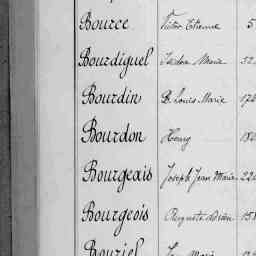 Bource Victor Etienne 5
Bourdiguel Isidore Marie 52
Bourdin B. Louis Marie 176
Bourdon Henry
Bourgeais Joseph Jean Marie 226
Bourgeois Auguste 158
Bouriel Marie